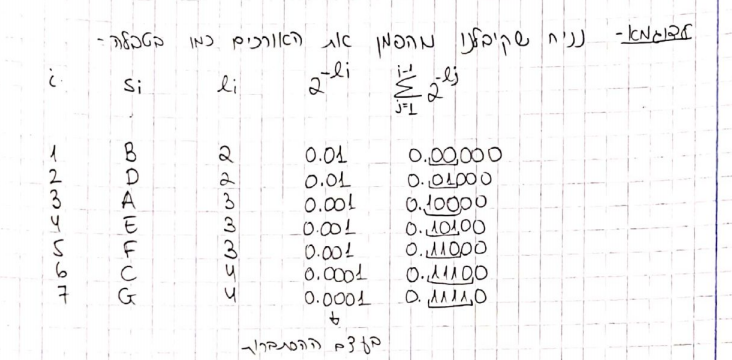 לדוגמא- נניח שקיבלנו מהפמן את האורכים כמו בטבלה-
i Si li 2^-li \sum_{j=1}^{i-1} 2^-lj
1 B 2 0.01 0.00000
2 D 2 0.01 0.01000
3 A 3 0.001 0.10000
4 E 3 0.001 0.10100
5 F 3 0.001 0.11000
6 C 4 0.0001 0.11100
7 G 4 0.0001 0.11110
↓
בעצם ההסתברות